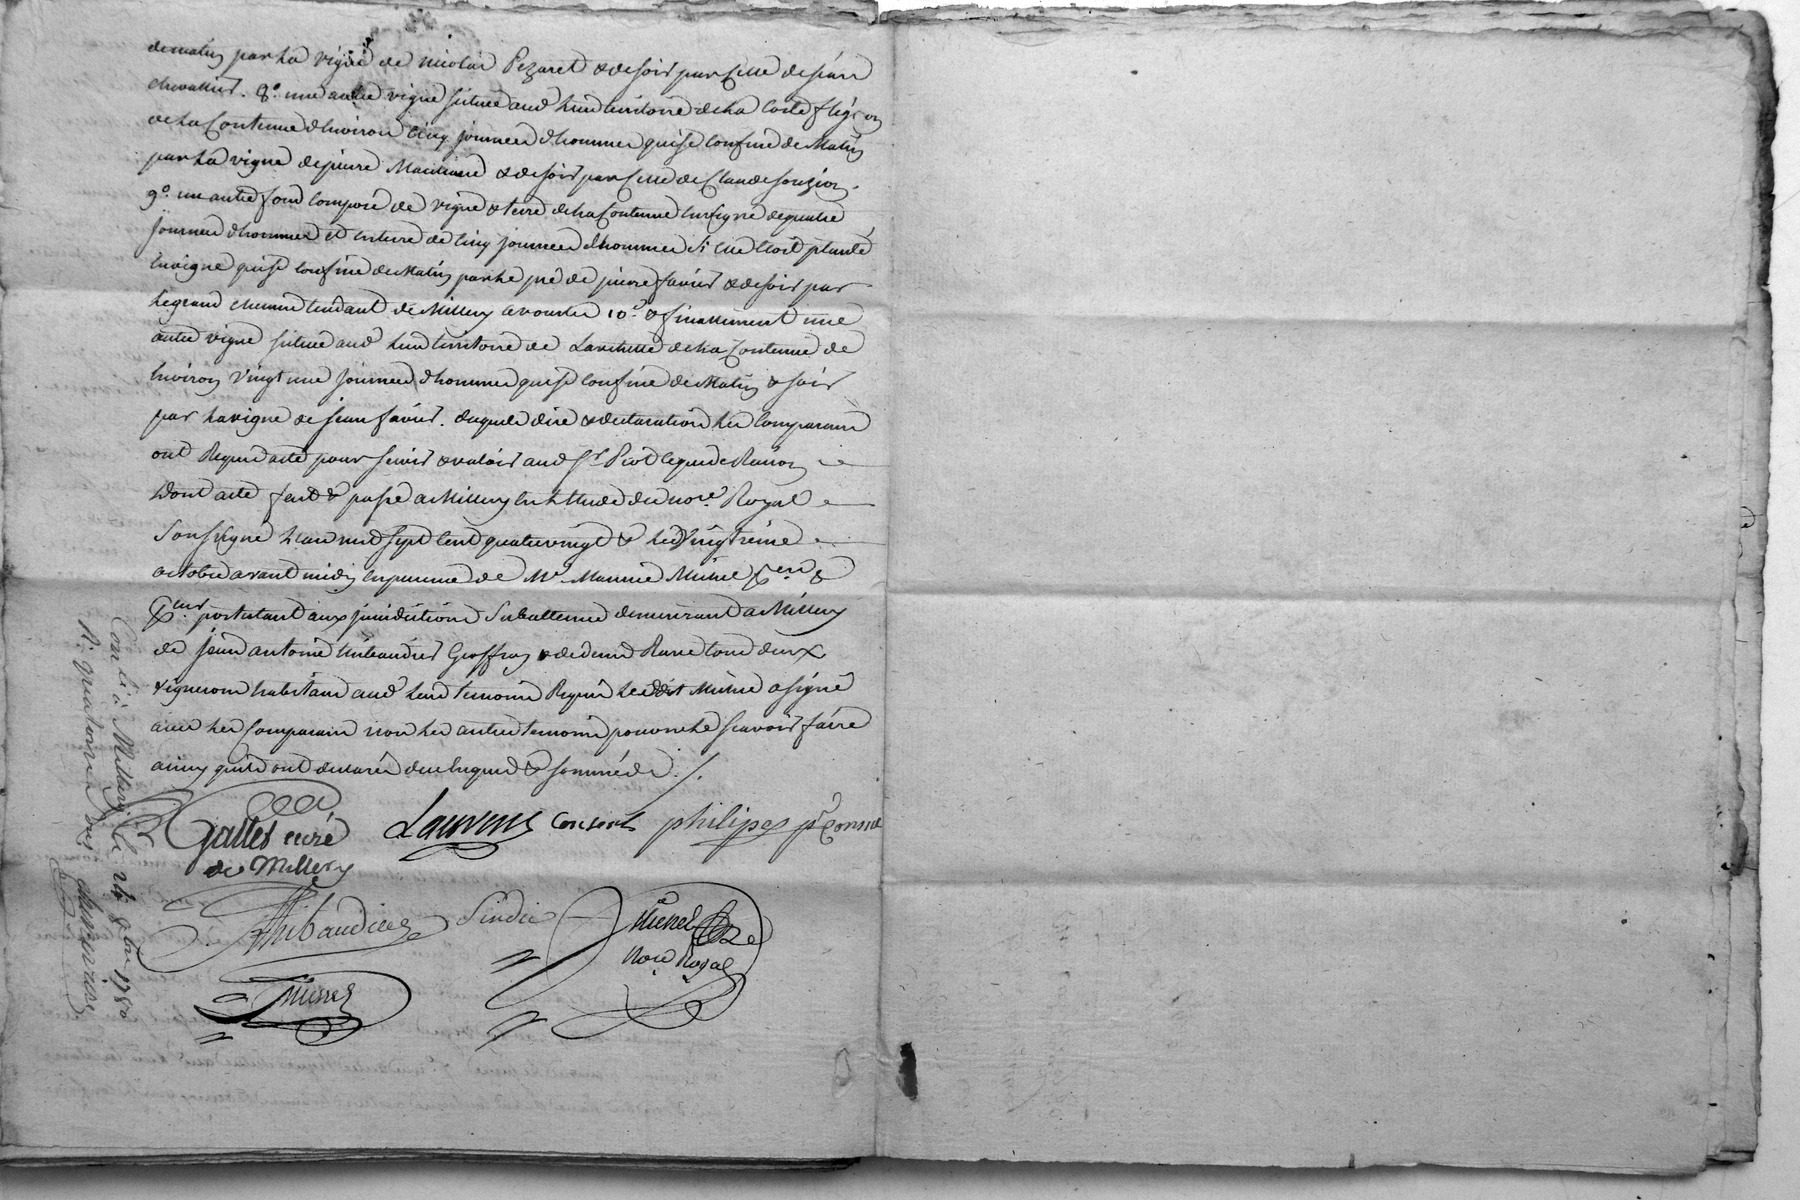 de matin par la vigne de nicolas Pezaret & de soir par celle de jean
chevallier. 8.° une autre vigne situee aud lieu territoire de la Coste
de la Contenue d'Environ Cinq journees d'hommes qui se confine de Matin
par la vigne de pierre & de soir par Celle de Claude souzion.
9.° un autre fond composé de vigne & terre de la Contenue En vigne de quatre
journees d'hommes et En terre de Cinq journees d'hommes si elle Etoit plantée
En vigne qui se confine de Matin par le pré de pierre favier & de soir par
le grand chemin tendant de Millery a vourles 10.° & finallement une
autre vigne situee aud lieu territoire de de la Contenue de
Environ Vingt une journees d'hommes qui se confine de Matin & soir
par la vigne de jean favier. desquels dire & declaration les Comparans
ont Requis acte pour servir & valoir aud Sr Piot ce que de Raison
Dont acte fait & passé a Millery En l'Etude du no.re Royal
Soussigné L'an mil sept Cent quatre vingt & le vingt treize
octobre avant midy En presence de Me Maurice Michel &
postulant aux juridictions Subalternes demeurant a Millery
de jean antoine thibaudier Geoffray & de denis Rave tous deux
vignerons habitans aud lieu temoins Requis led. Michel a signé
avec les Comparans non les autres temoins pour ne le sçavoir faire
ainsy qu'ils ont declaré de ce Enquis & sommés ./.
Gallet curé Laurens Consert philipes p.
de Millery
Thibaudier Sindic Michel
Nore Royal
Michel
Con.lé à Millery le 24 8bre 1780
R. quatorze sols